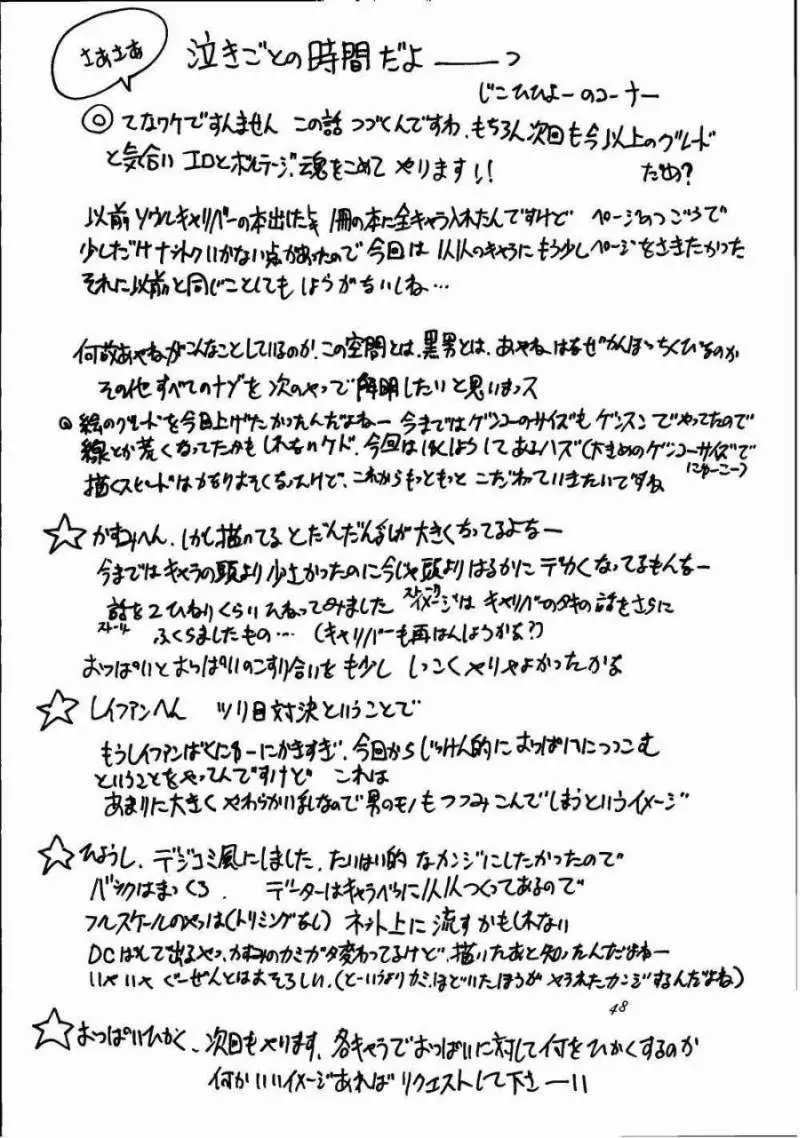 さぁさぁ
泣きごとの時間だよ――っ
じこひひょーのコーナー
◎ てなワケですんません この話 つづくんですわ、もちろん次回も今以上のグレード
と気合い エロとボルテージ、魂をこめて やります!! だめ?
以前 ソウルキャリバーの本出したとき 1冊の本に全キャラ入れたんですけど ページのつごうで
少しだけナットクいかない点があったので今回は 1人1人のキャラにもう少しページをさきたかった
それに以前と同じことしても しょうがないしね…
何故あやねがこんなことしているのか、この空間とは、黒男とは、あやねはなぜ
その他 すべてのナゾを 次のやつで 解明したいと思いまっス
◎ 絵のグレードを今回上げたかったんだよねー 今まではゲンコーのサイズも ゲンスン でやってたので
線とか荒くなってたかもしれないケド、今回は してあるハズ(大きめのゲンコーサイズで
描くスピードはかなりおそくなったけど、これからもっともっと こだわっていきたいですね
☆ かすみへん、しかし描いてるとだんだん乳が大きくなってるよなー
今まではキャラの頭より少さかったのに今じゃ頭よりはるかに デカくなってるもんなー
話を2ひねりくらいひねってみました イメージは キャリバーのタキの話をさらに
ストーリー ふくらましたもの… (キャリバーも再はんしようかな?)
おっぱいとおっぱいのこすり合いを も少し しつこくやりゃよかったかな
☆ レイファンへん ツリ目対決ということで
もうレイファンばくにゅーにかきすぎ、今回からじっけん的におっぱいにつつこむ
ということをやってんですけど これは
あまりに大きく やわらかい乳なので男のモノもつつみこんでしまうというイメージ
☆ ひょうし、デジコミ風にしました、たいはい的 なカンジにしたかったので
バックはまっくろ、 データーはキャラべつに1人1人つくってあるので
フルスケールのやつは(トリミングなし) ネット上に 流すかもしれない
DC はんで出るやつ、かすみのカミガタ変わってるけど、描いたあと知ったんだよねー
いやいや ぐーぜんとはおそろしい、(とーいうよりカミ、ほどいたほうが やられたカンジするんだよね)
48
☆ おっぱいひかく、次回もやります、各キャラでおっぱいに対して何をひかくするのか
何かいいイメージあれば リクエストして下さーーいい